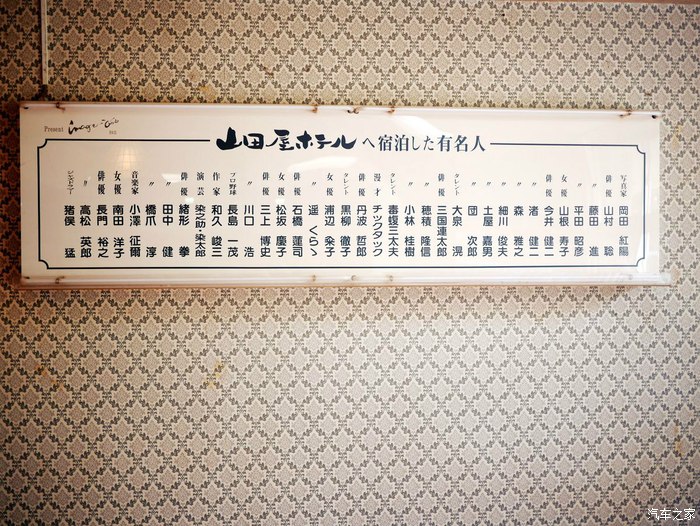 Present
山田屋ホテルへ宿泊した有名人
写真家 岡田 紅陽
俳優 山村 聡
〃 藤田 進
〃 平田 昭彦
女優 山根 寿子
俳優 今井 健二
〃 渚 健二
〃 森 雅之
〃 細川 俊夫
〃 土屋 嘉男
〃 団 次郎
タレント 大泉 滉
俳優 三国連太郎
〃 穂積 隆信
〃 小林 桂樹
タレント 毒蝮三太夫
漫才 チックタック
俳優 丹波 哲郎
タレント 黒柳 徹子
女優 浦辺 粂子
〃 遥 くらゝ
俳優 石橋 蓮司
女優 松坂 慶子
俳優 三上 博史
〃 川口 浩
プロ野球 長島 一茂
作家 和久 峻三
演芸 染之助・染太郎
俳優 緒形 拳
〃 田中 健
〃 橋爪 淳
音楽家 小澤 征爾
女優 南田 洋子
俳優 長門 裕之
〃 高松 英郎
猪俣 猛
汽车之家